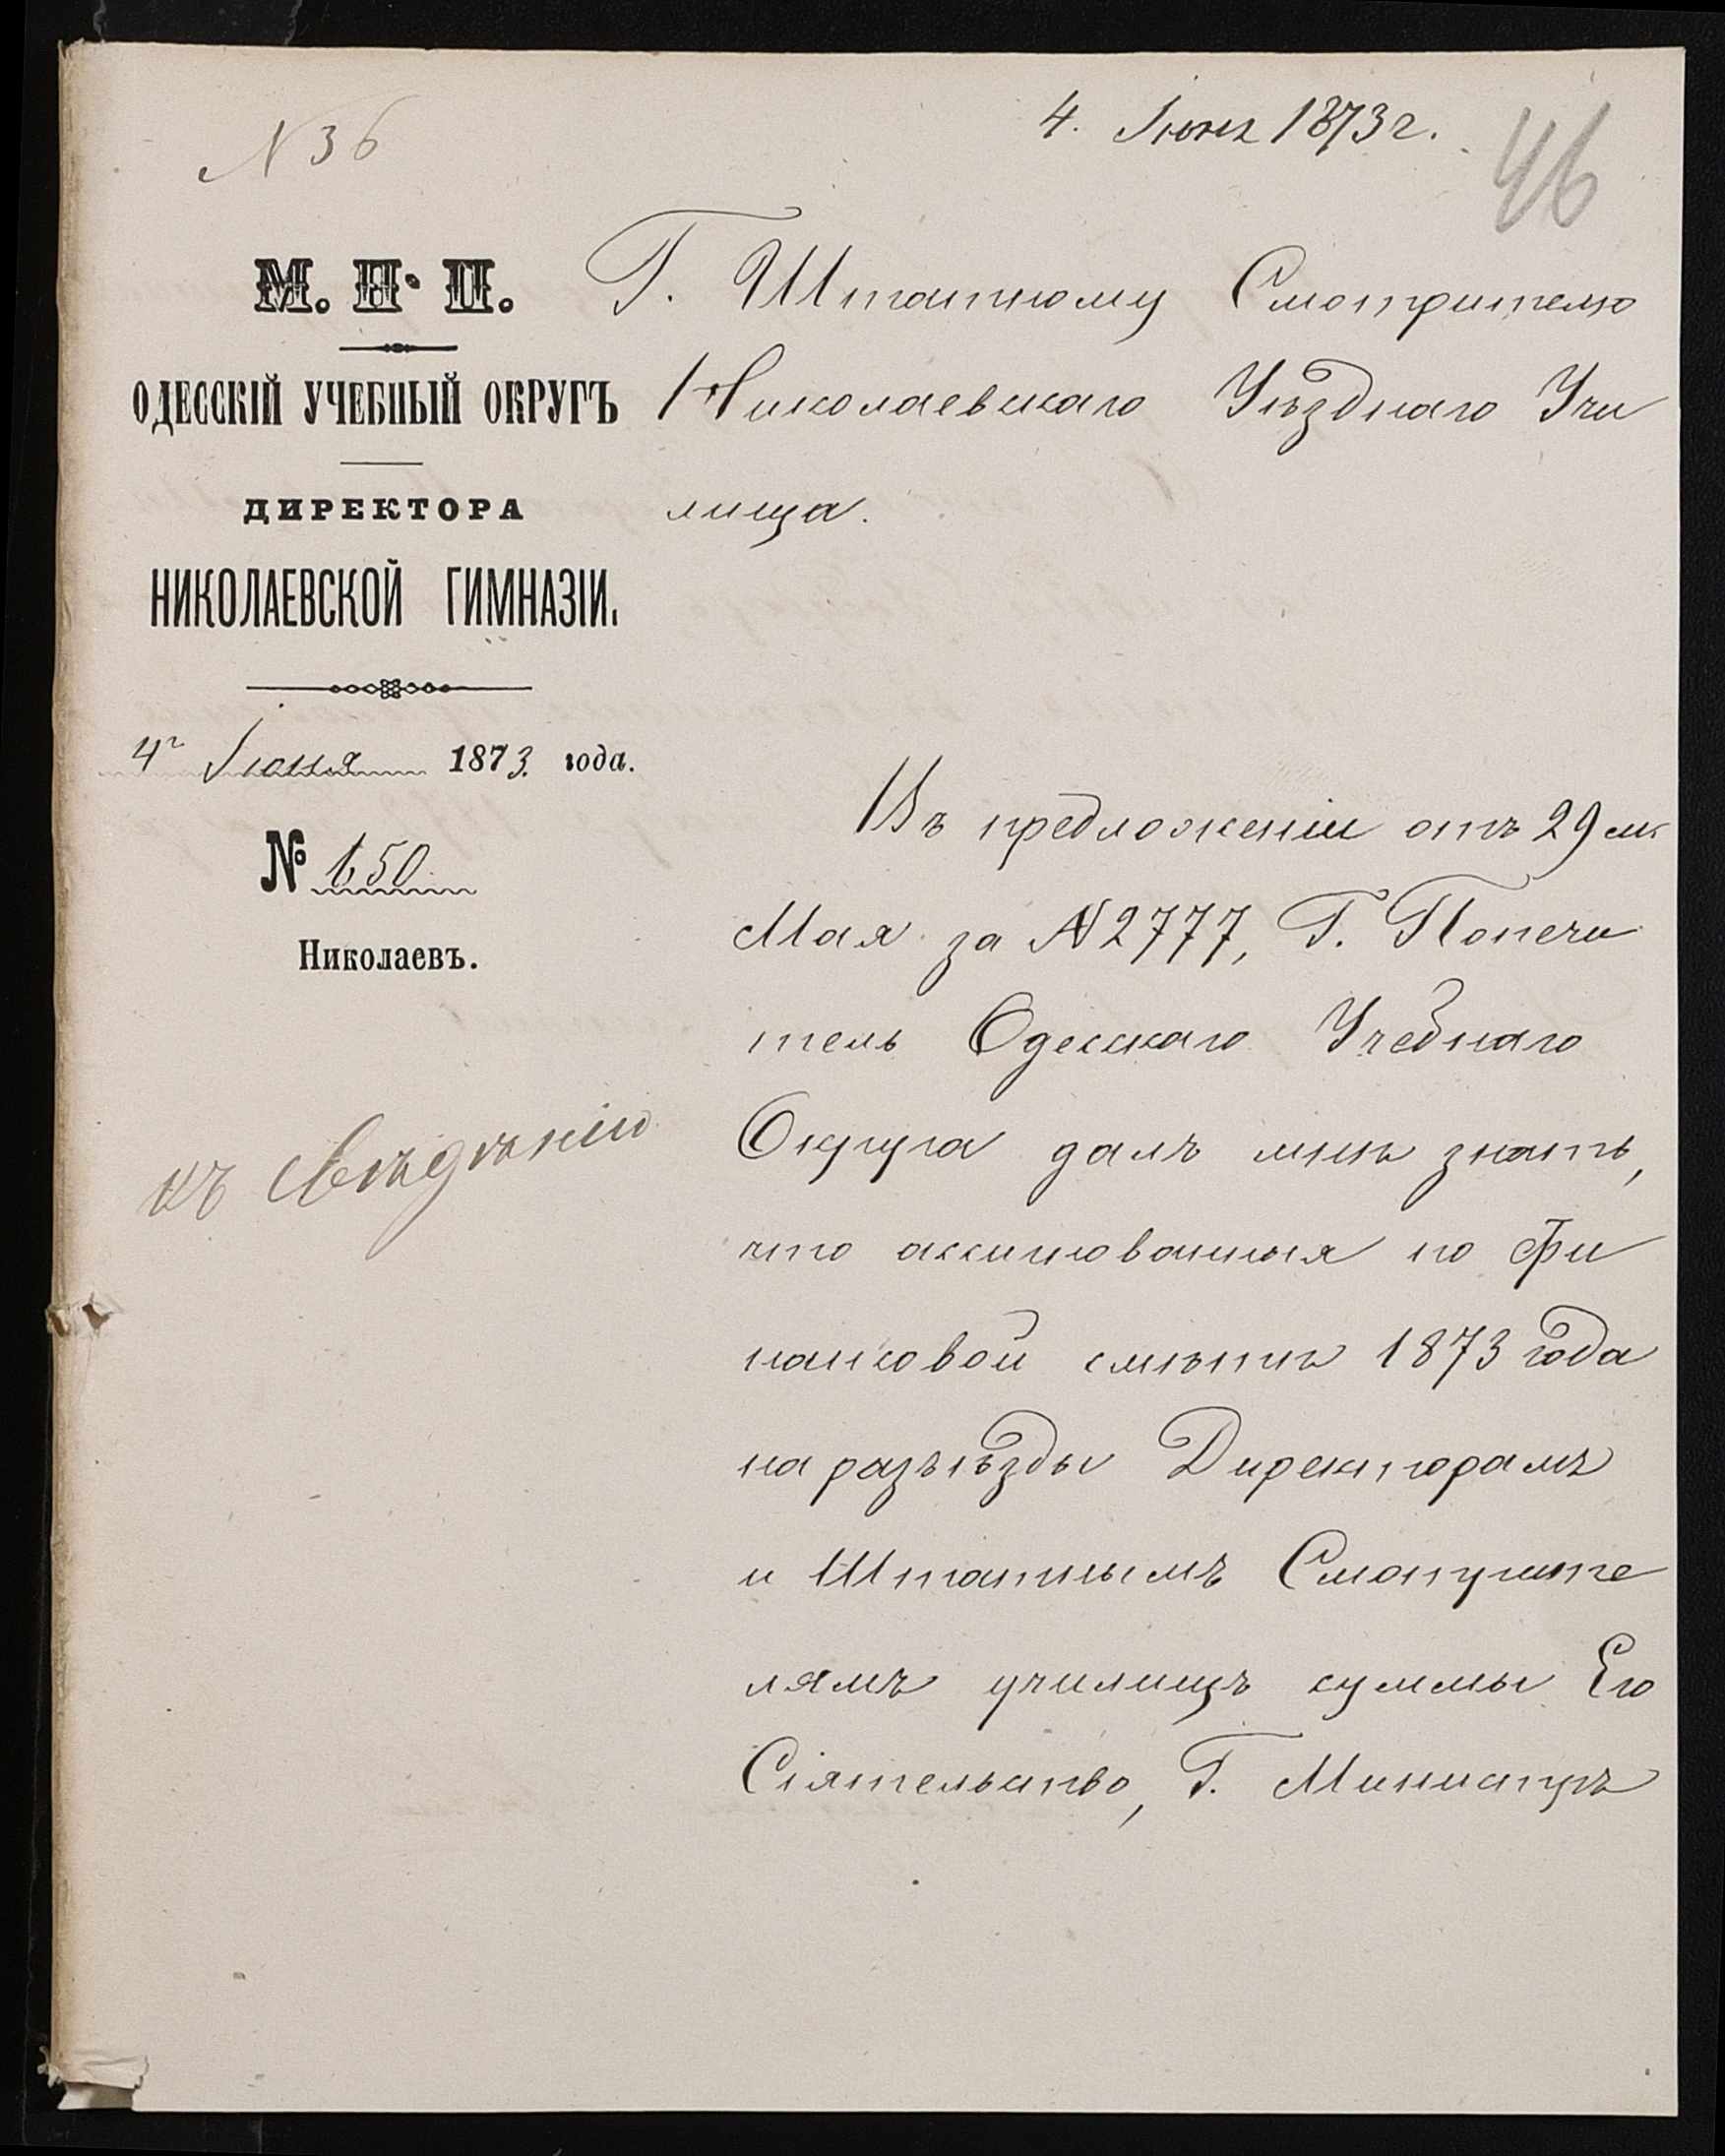 N 36
4. Іюня 1873 г.
46
М. Н. П.
ОДЕССКІЙ УЧЕБНЫЙ ОКРУГЪ
ДИРЕКТОРА
НИКОЛАЕВСКОЙ ГИМНАЗІИ.
4го Іюня 1873. года.
№ 650
Николаевъ.
къ свѣдѣнію
Г. Штатному Смотрителю
Николаевскаго Уѣзднаго Учи
лища.
Въ предложеніи отъ 29 м.
Мая за N 2777, Г. Попечи
тель Одесскаго Учебнаго
Округа далъ мнѣ знать,
что ассигнованныя по фи
нансовой смѣтѣ 1873 года
на разъѣзды Директорамъ
и Штатнымъ Смотрите
лямъ училищъ суммы Его
Сіятельство, Г. Министръ